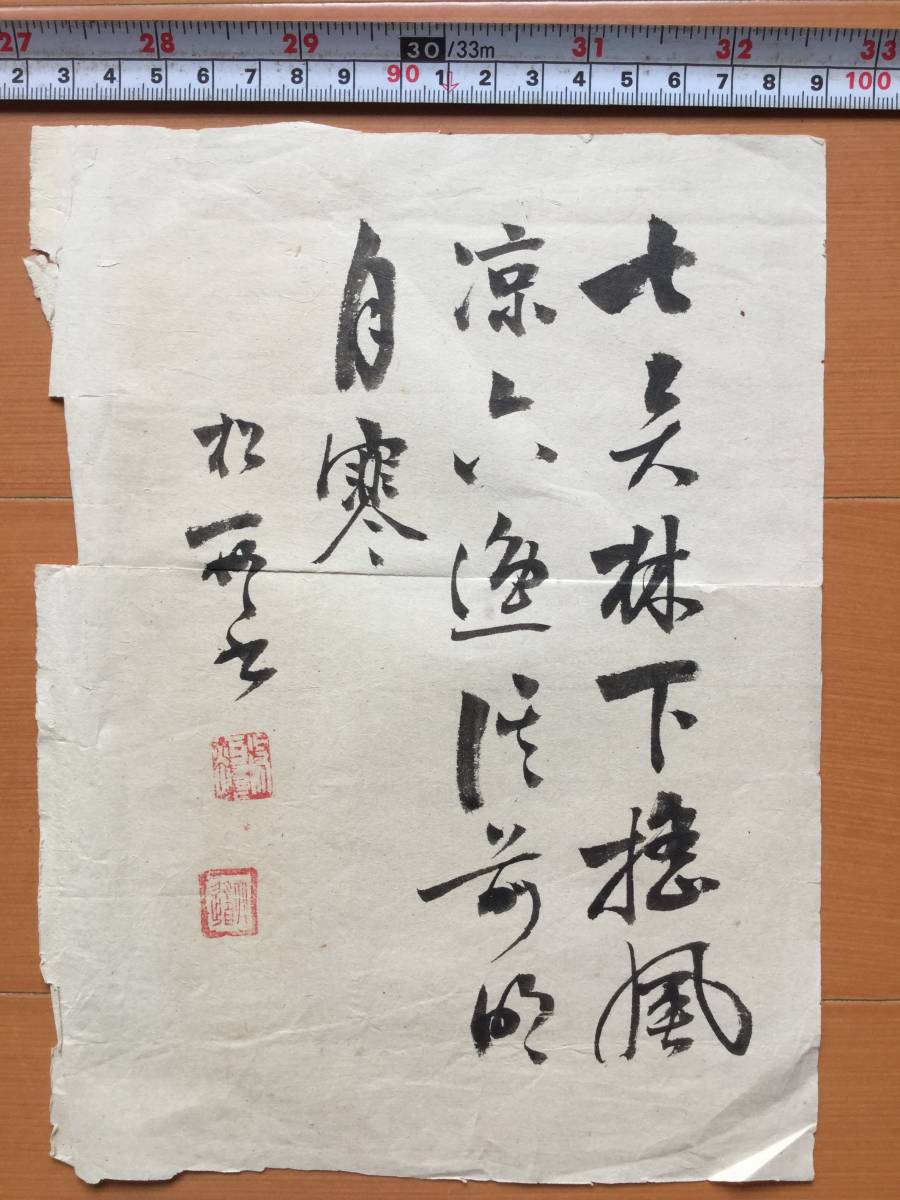 27 28 29 30/33m 31 32 33
2 3 4 5 6 7 8 9 90 1 2 3 4 5 6 7 8 9 100
七賢林下搖風
凉六逸溪前明
月寒
松 書